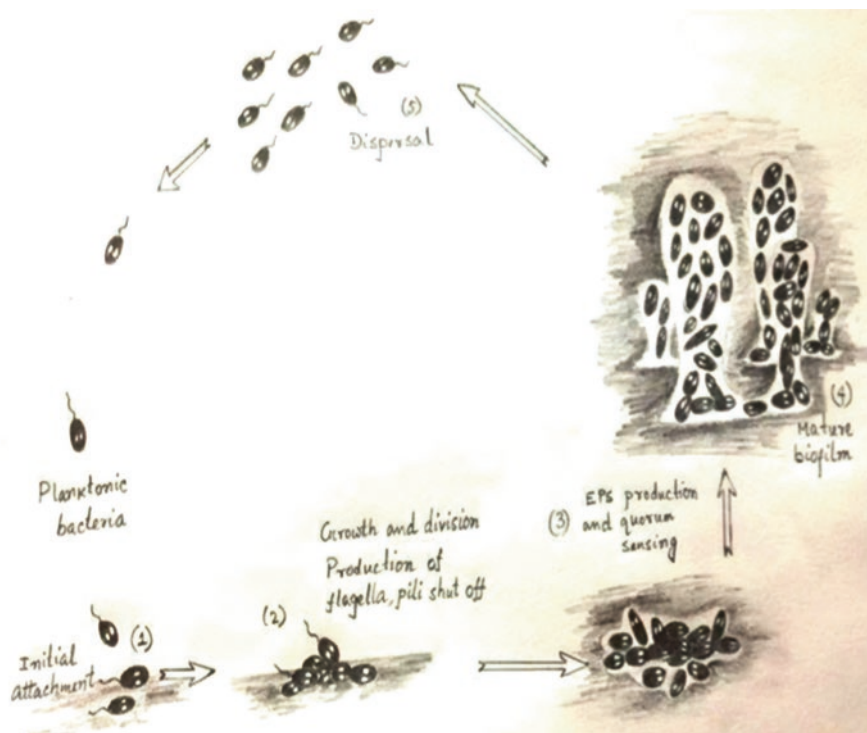 (5)
Dispersal
Planktonic
bacteria
Initial
attachment
(1)
(2)
Growth and division
Production of
flagella, pili shut off
(3)
EPS production
and quorum
sensing
(4)
Mature
biofilm